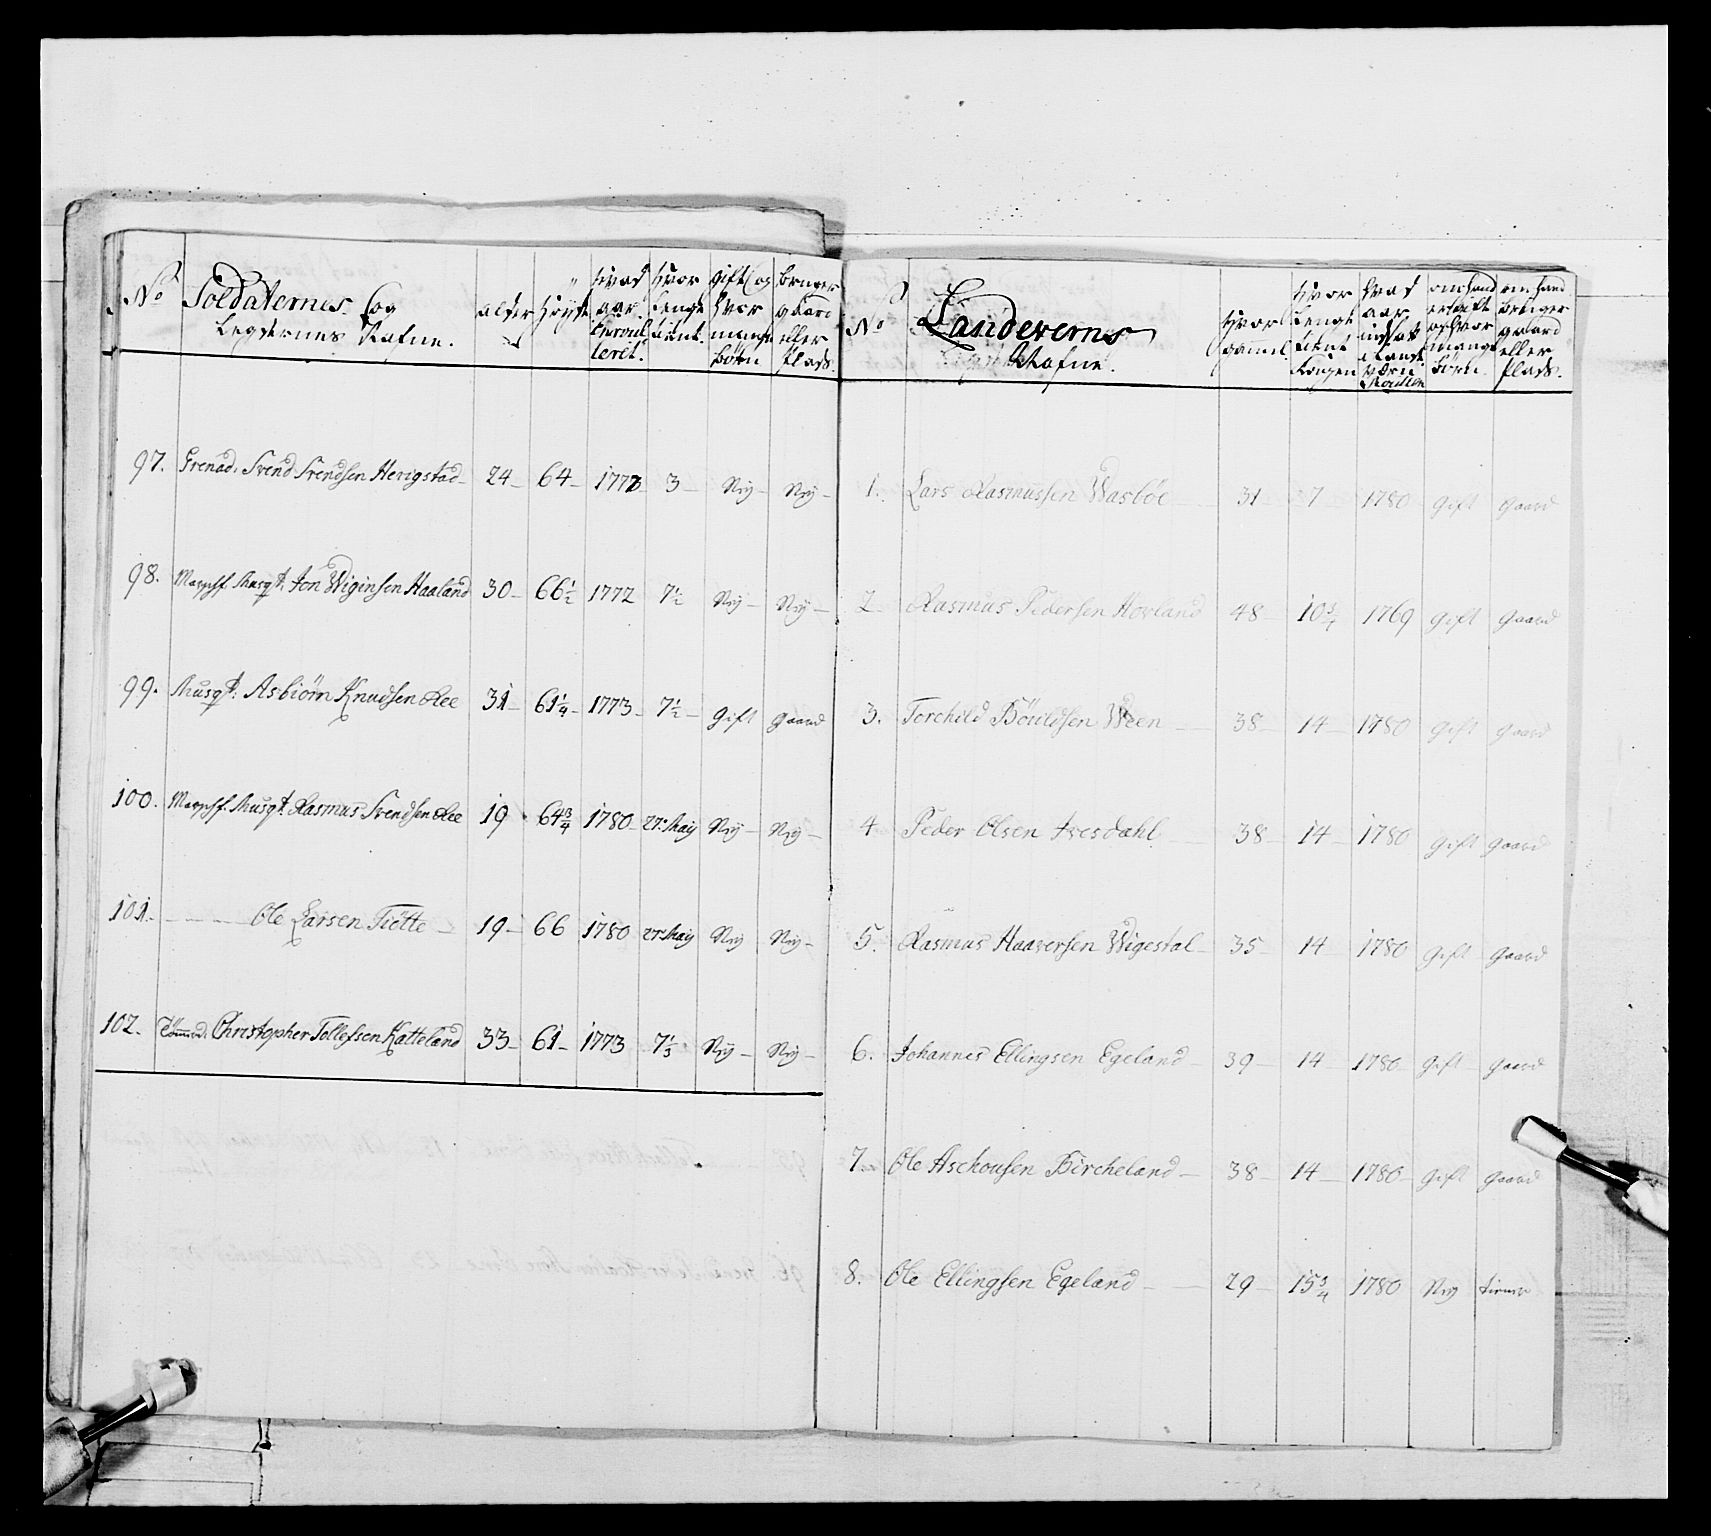 No Soldaternes og Legdernes Nafne. alder Høyde Hvad aar Enroulleret. Hvor Lenge tient. gift og Hvor mange børn bruger gaard eller Plads.
97. Grenad. Svend Svendsen Herigstad 24 64 1777 3 Nÿ Nÿ
98. Musqt. Jon Wiginsen Haaland 30 66 1/2 1772 7 1/2 Nÿ Nÿ
99. Musqt. Asbiørn Knudsen Ree 31 61 1/4 1773 7 1/2 gift gaard
100. Musqt. Rasmus Svendsen Ree 19 64 3/4 1780 27. Maÿ Nÿ Nÿ
101. Ole Larsen Tiøtte 19 66 1780 27. Maÿ Nÿ Nÿ
102. Christopher Tollefsen Katteland 33 61 1773 7 1/3 Nÿ Nÿ
No Landeverns Nafne. Hvor gammel Hvor Lenge tient Kongen Hvad aar indsat i Lande værn om hand er gift og hvor mange børn om hand bruger gaard eller Plads.
1. Lars Rasmussen Wasbøe 31 7 1780 gift gaard
2 Rasmus Pedersen Hovland 48 10 3/4 1769 gift gaard
3. Torchild Bouldsen Ween 38 14 1780 gift gaard
4 Peder Olsen Ivesdahl 38 14 1780 gift gaard
5. Rasmus Haaversen Wigestal 35 14 1780 gift gaard
6. Johannes Ellingsen Egeland 39 14 1780 gift gaard
7. Ole Aschousen Bircheland 38 14 1780 gift gaard
8. Ole Ellingsen Egeland 29 15 3/4 1780 Nÿ tiener